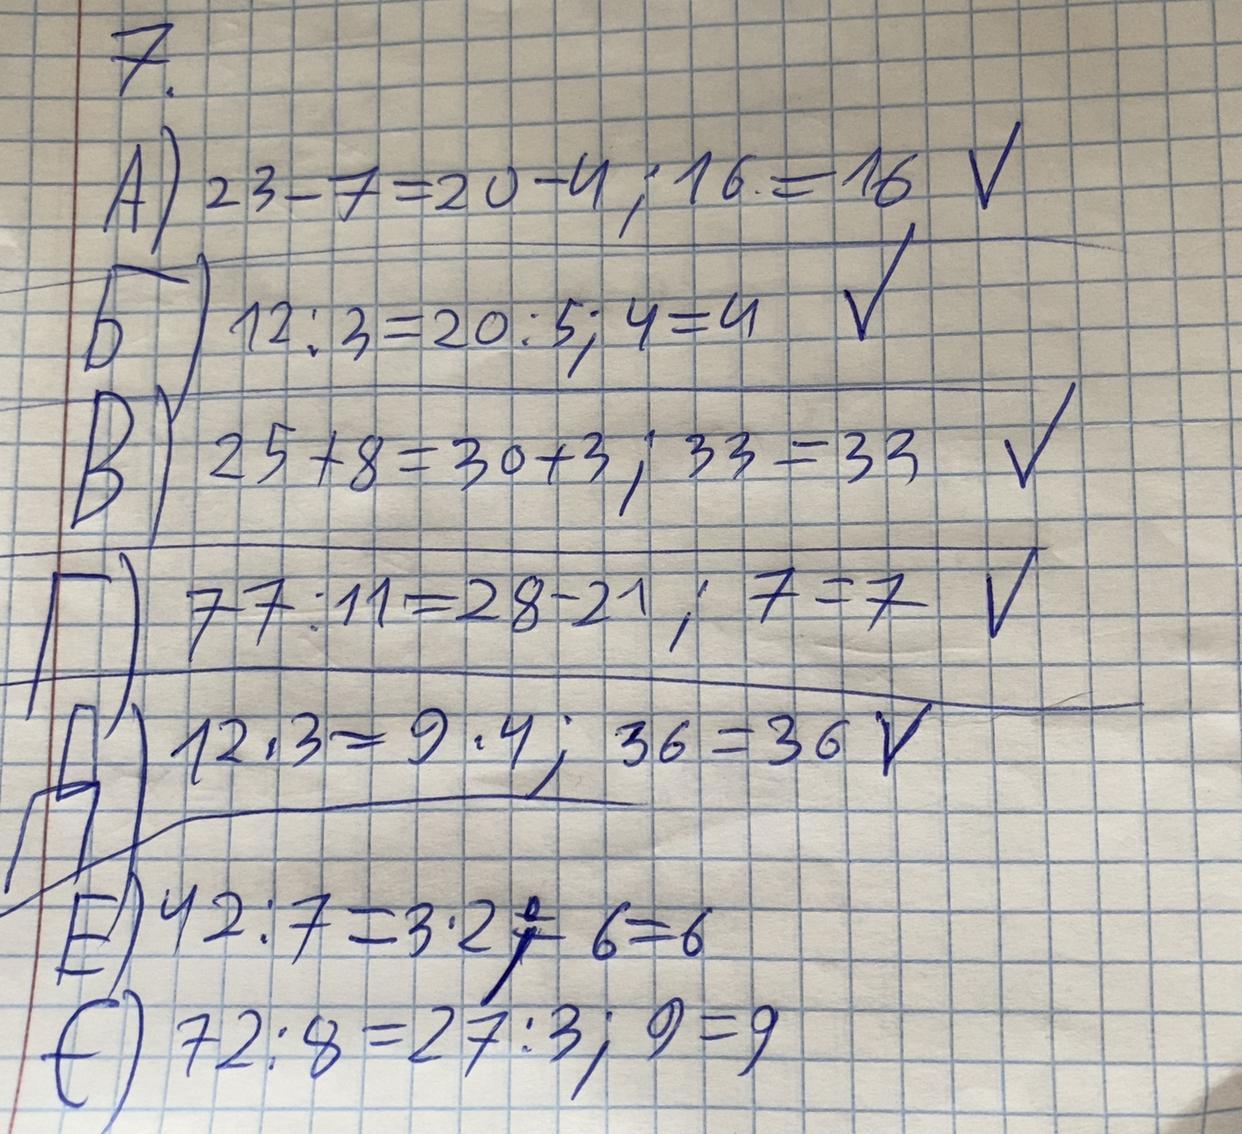 7.
А) 23-7=20-4; 16=16 ✓
Б) 12:3=20:5; 4=4 ✓
В) 25+8=30+3; 33=33 ✓
Г) 77:11=28-21; 7=7 ✓
Д) 12·3=9·4; 36=36 ✓
Е) 42:7=3·2; 6=6
Є) 72:8=27:3; 9=9